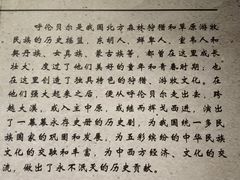 呼伦贝尔是我国北方森林狩猎和草原游牧
民族的历史摇篮，东胡人、鲜卑人、室韦人和
契丹族、女真族、蒙古族等，都曾在这里成长
壮大，度过了他们美好的童年和青春时期；也
在这里创造了独具特色的狩猎、游牧文化。在
他们强大起来之后，便从呼伦贝尔走出去，跨
越大漠，或入主中原，或继而挥戈西进，演出
了一幕幕永存史册的历史剧，为我国统一多民
族国家的巩固和发展，为五彩缤纷的中华民族
文化的交融和丰富，为中西方经济、文化的交
流，做出了永不泯灭的历史贡献。